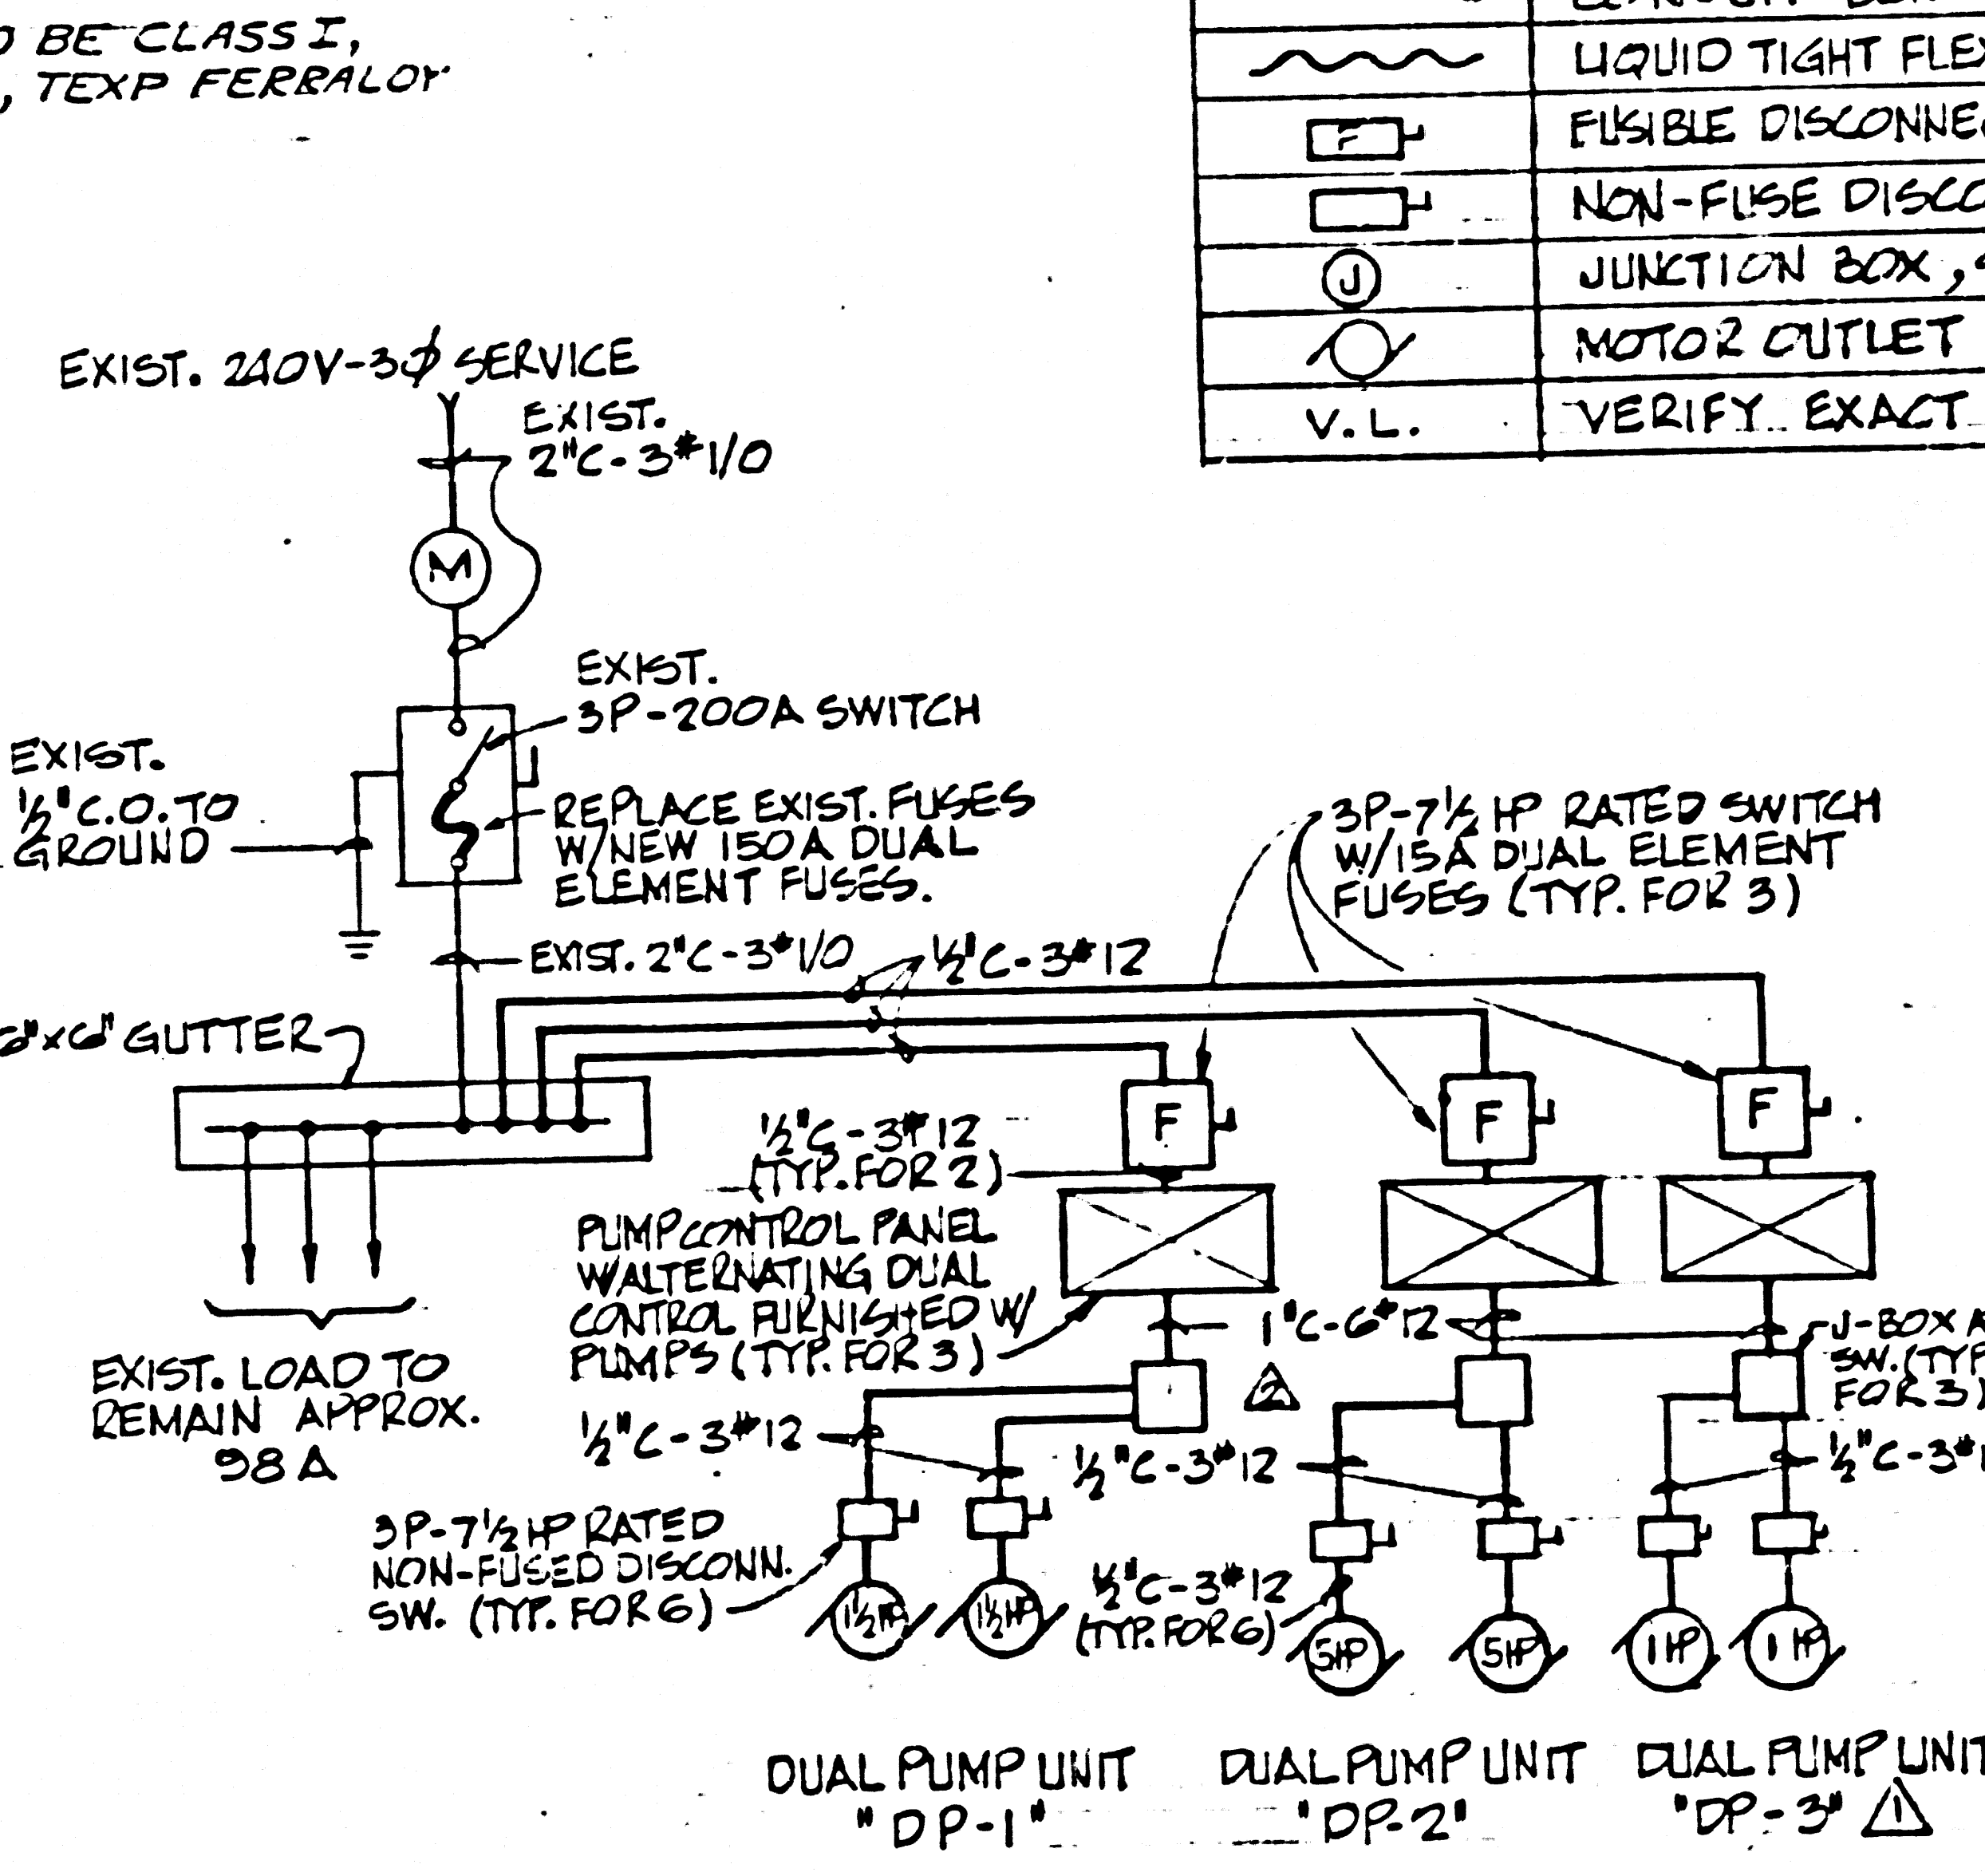 BE CLASS I,
, TEXP FERRALOY
LIQUID TIGHT
F
FUSIBLE
NON-FUSE
J
JUNCTION BOX,
MOTOR OUTLET
V.L.
VERIFY EXACT
EXIST. 240V-3Ø SERVICE
EXIST.
2"C-3#1/0
M
EXIST.
3P-200A SWITCH
EXIST.
½"C.O. TO
GROUND
REPLACE EXIST. FUSES
W/NEW 150A DUAL
ELEMENT FUSES.
3P-7½ HP RATED SWITCH
W/15A DUAL ELEMENT
FUSES (TYP. FOR 3)
EXIST. 2"C-3#1/0
½"C-3#12
6"x6" GUTTER
F
F
F
½"C-3#12
(TYP. FOR 2)
PUMP CONTROL PANEL
W/ALTERNATING DUAL
CONTROL FURNISHED W/
PUMPS (TYP. FOR 3)
1"C-6#12
J-BOX
SW. (TYP
FOR 3)
2
EXIST. LOAD TO
REMAIN APPROX.
98A
½"C-3#12
½"C-3#12
½"C-3#
3P-7½ HP RATED
NON-FUSED DISCONN.
SW. (TYP. FOR 6)
½"C-3#12
(TYP. FOR 6)
1½HP
1½HP
5HP
5HP
1 HP
1 HP
DUAL PUMP UNIT
"DP-1"
DUAL PUMP UNIT
"DP-2"
DUAL PUMP UNIT
"DP-3" 1